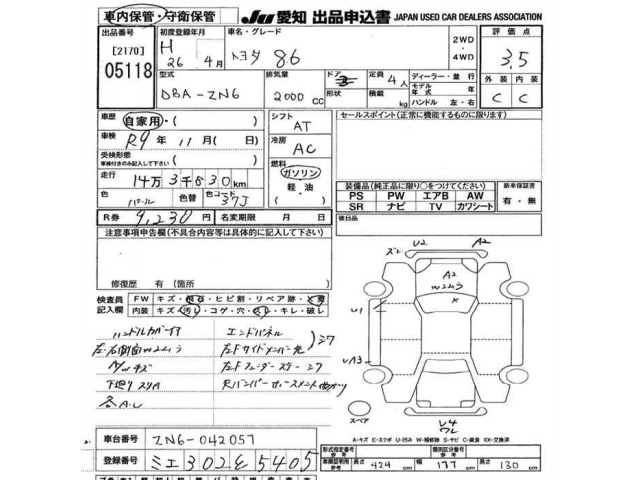 車内保管・守衛保管
JU 愛知 出品申込書 JAPAN USED CAR DEALERS ASSOCIATION
出品番号 [2170] 05118
初度登録年月 H 26年 4月
車名・グレード トヨタ 86
2WD・4WD
評価点 3.5
型式 DBA-ZN6
排気量 2000 CC
ドア 形状
定員 4人 積載 kg
ディーラー・並行
モデル年式 年
ハンドル 左・右
外装 C 内装 C
車歴 自家用・( )
シフト AT
セールスポイント(正常に機能するものに限ります)
車検 R9年 11月( )日
冷房 AC
受検形態 車検付きのみ記入して下さい ( )
走行 14万3千830km
燃料 ガソリン 軽油 ( )
色 パール 色替 色コード 37J
装備品(純正品に限り○をつけてください)
PS PW エアB AW
SR ナビ TV カワシート
新車保証書 有・無
R券 9,230円 名変期限 月 日
後日品
注意事項申告欄(不具合内容等は具体的に記入して下さい)
修復歴 有〔箇所 〕
検査員記入欄
FW キズ・飛石・ヒビ割・リペア跡・
内装 キズ・汚レ・コゲ・穴・ ・キレ・破レ
ハンドルカバー
エンドパネル
左・右側面Wムラ
左Fサイドメンバー先
タッチキズ
左Fフェンダーステー
下廻りスリA
各A・U
ズレ U2 A2
A2
Wムラ
×
U1
UA3
スペア
U4
ワレ
A-キズ E-エクボ U-凹み W-補修跡 S-サビ C-腐食 XX-交換済
車台番号 ZN6-042057
登録番号 ミエ302 5405
形式指定番号 参考
類別区分番号 参考
車庫証明用 参考 長さ 424cm 幅 177cm 高さ 130cm